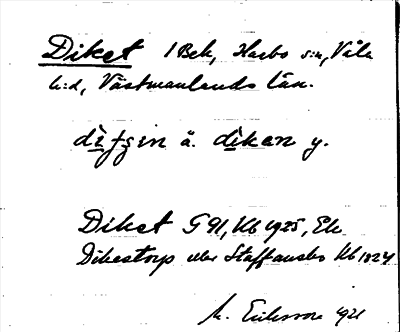 Diket 1 Bek, Harbo s:n, Våla
h:d, Västmanlands län.
ä. dikan y.
Diket G 91, Kb 1925, Ek
Dikestorp eller Staffansbo Kb 1824
M. Eriksson 1921